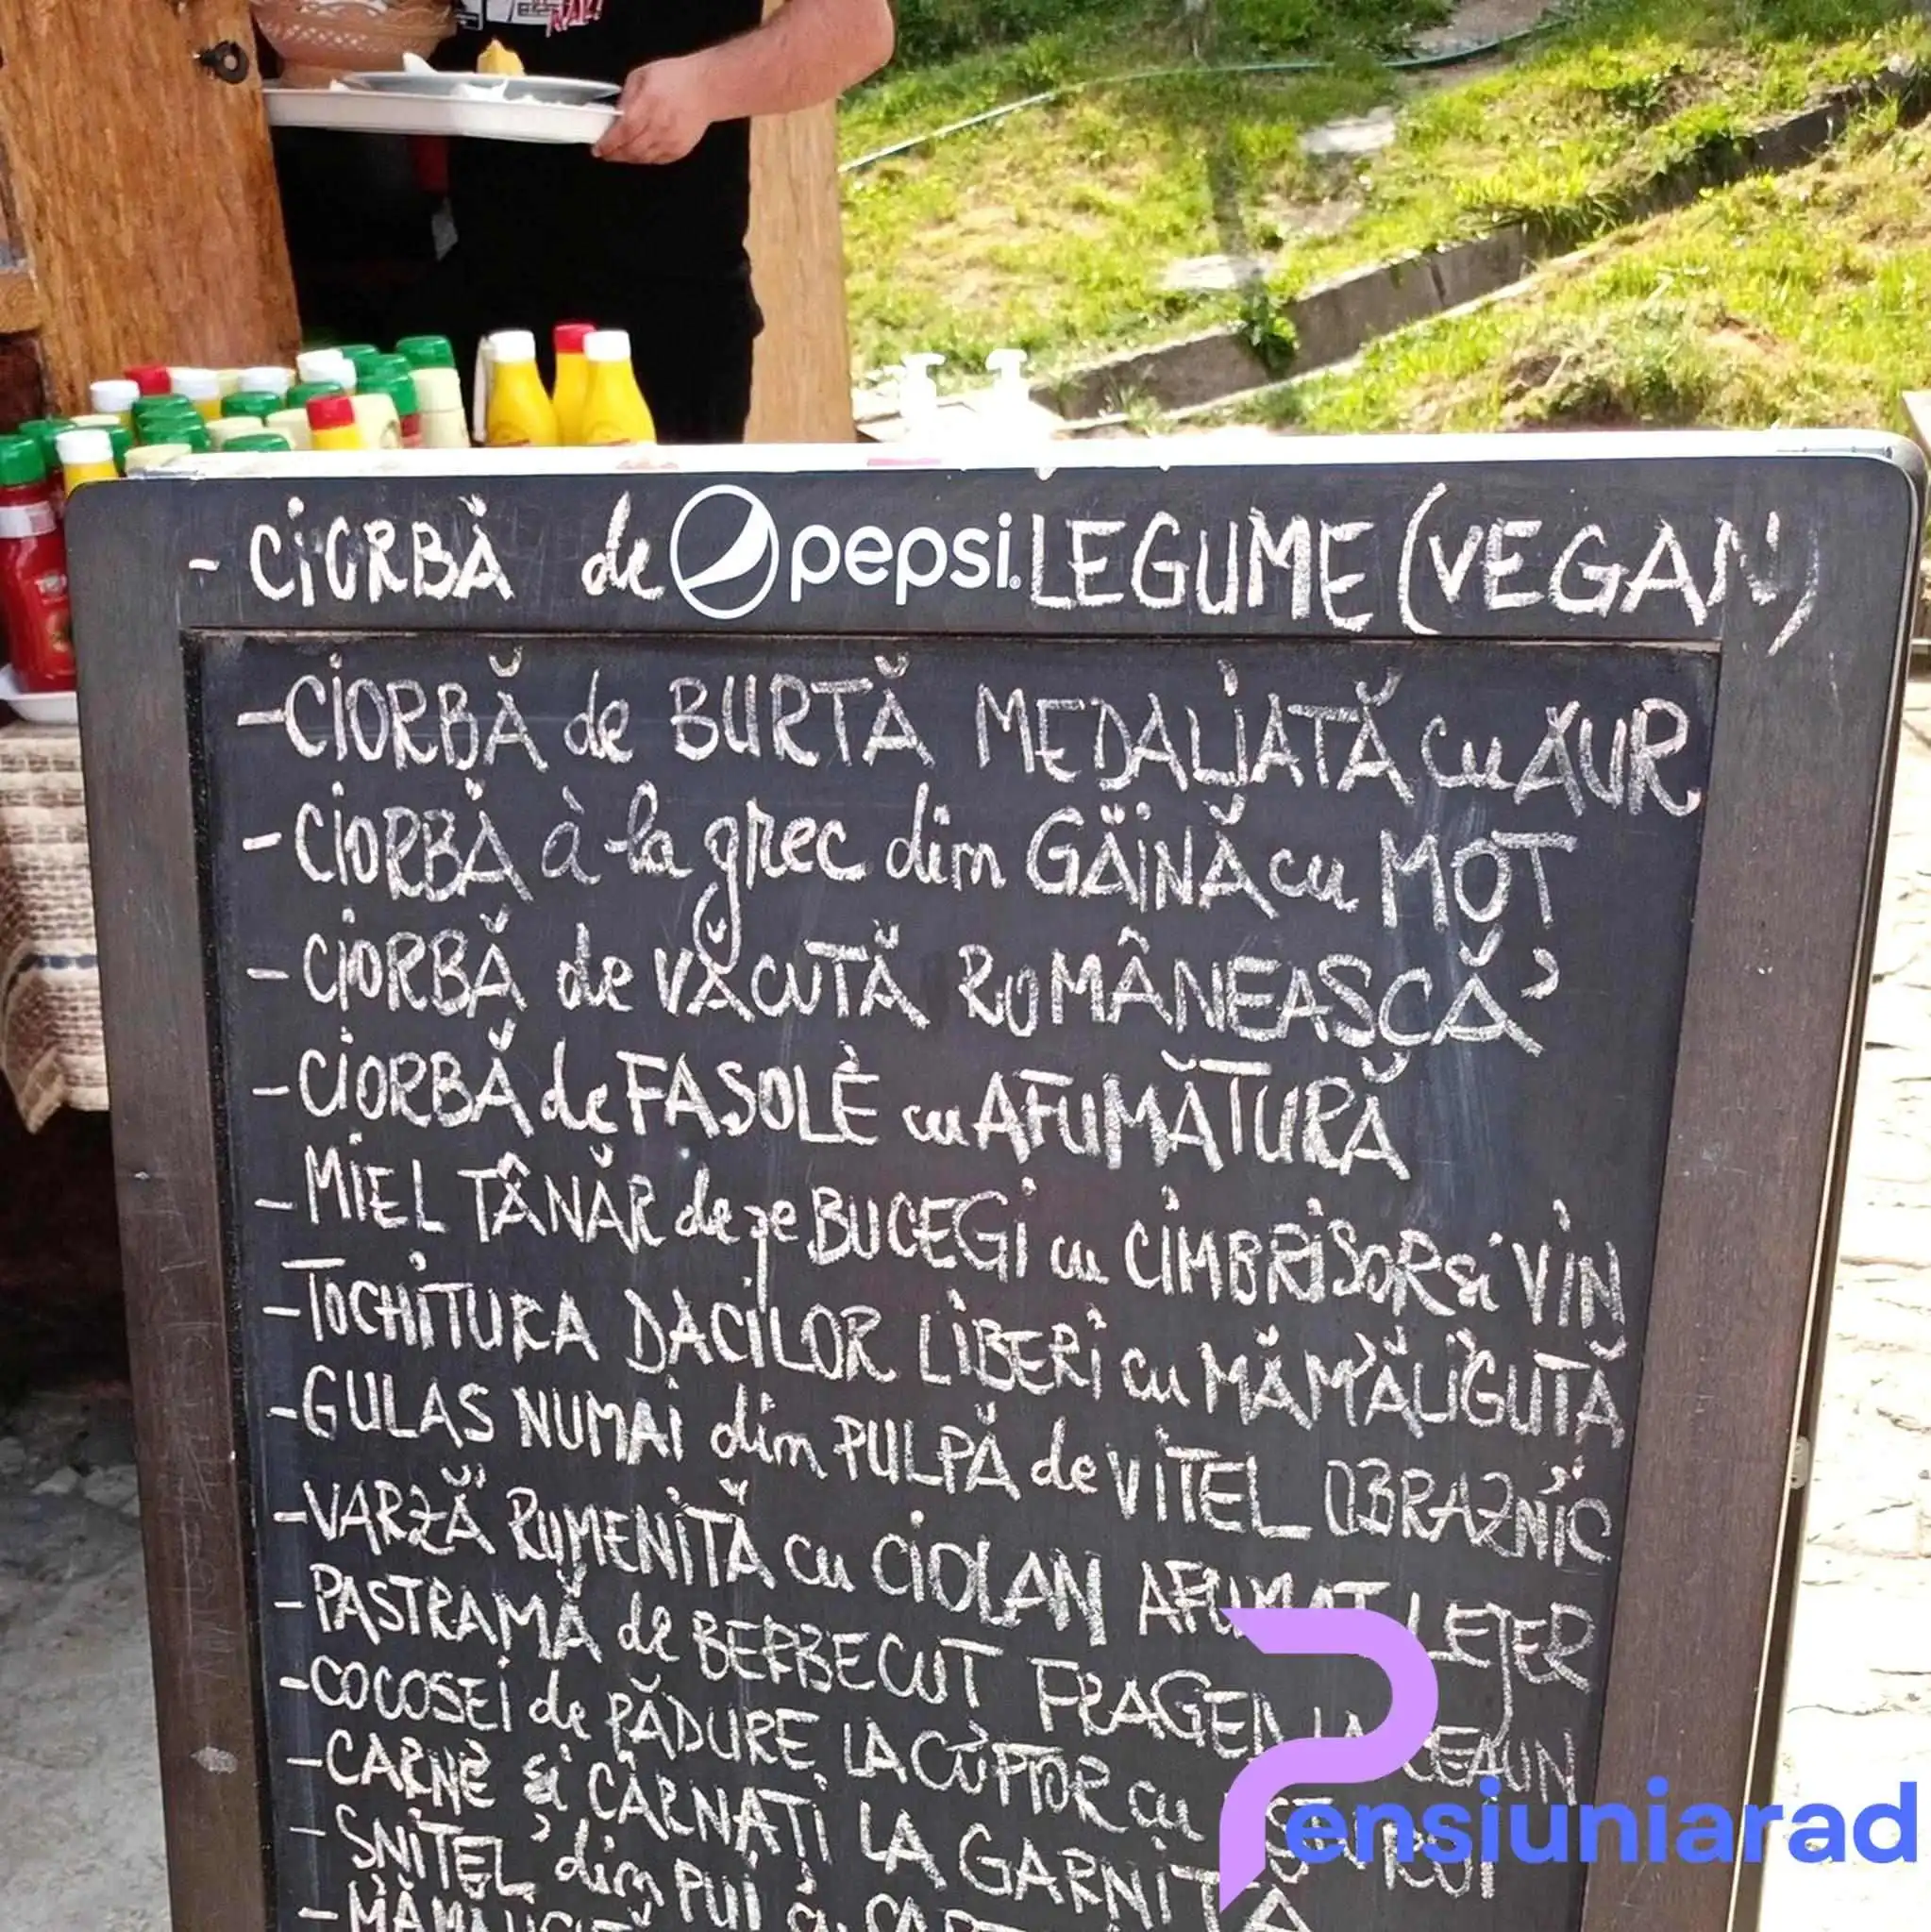 - CIORBĂ de pepsi LEGUME (VEGAN)
- CIORBĂ de BURTĂ MEDALIATĂ cu AUR
- CIORBĂ à la grec din GĂINĂ cu MOT
- CIORBĂ de VĂCUTĂ ROMÂNEASCĂ
- CIORBĂ de FASOLE cu AFUMĂTURĂ
- MIEL TÂNĂR de pe BUCEGI cu CIMBRISOR si VIN
- TOCHITURA DACILOR LIBERI cu MĂMĂLIGUTĂ
- GULAS NUMAI din PULPĂ de VITEL OBRAZNIC
- VARZĂ RUMENITĂ cu CIOLAN AFUMAT LEJER
- PASTRAMĂ de BERBECUT FRAGED LA CEAUN
- COCOSEI de PĂDURE LA CUPTOR cu
- CARNE si CÂRNATI LA GARNITĂ
- SNITEL din PUI
Pensiuniarad